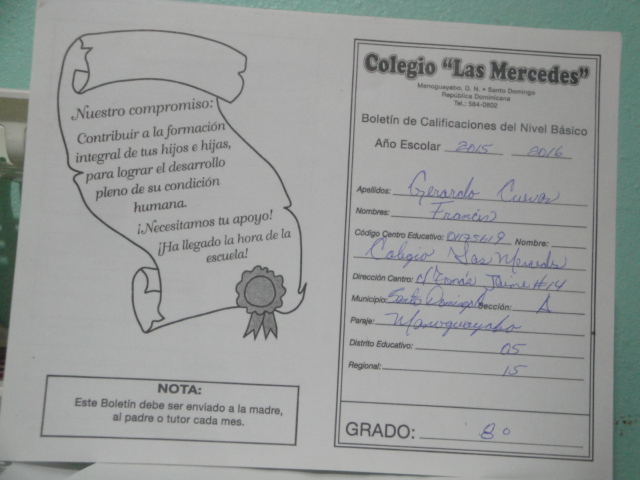 Nuestro compromiso:
Contribuir a la formación
integral de tus hijos e hijas,
para lograr el desarrollo
pleno de su condición
humana.
¡Necesitamos tu apoyo!
¡Ha llegado la hora de la
escuela!
NOTA:
Este Boletín debe ser enviado a la madre,
al padre o tutor cada mes.
Colegio "Las Mercedes"
Manoguayabo, D. N. • Santo Domingo
República Dominicana
Tel.: 564-0802
Boletín de Calificaciones del Nivel Básico
Año Escolar 2015 2016
Apellidos: Gerardo Cuevas
Nombres: Francis
Código Centro Educativo: Nombre:
Colegio Las Mercedes
Dirección Centro: c/ Tomás Jaime #14
Municipio: Santo Domingo Sección: A
Paraje: Manoguayabo
Distrito Educativo: 05
Regional: 15
GRADO: 8º